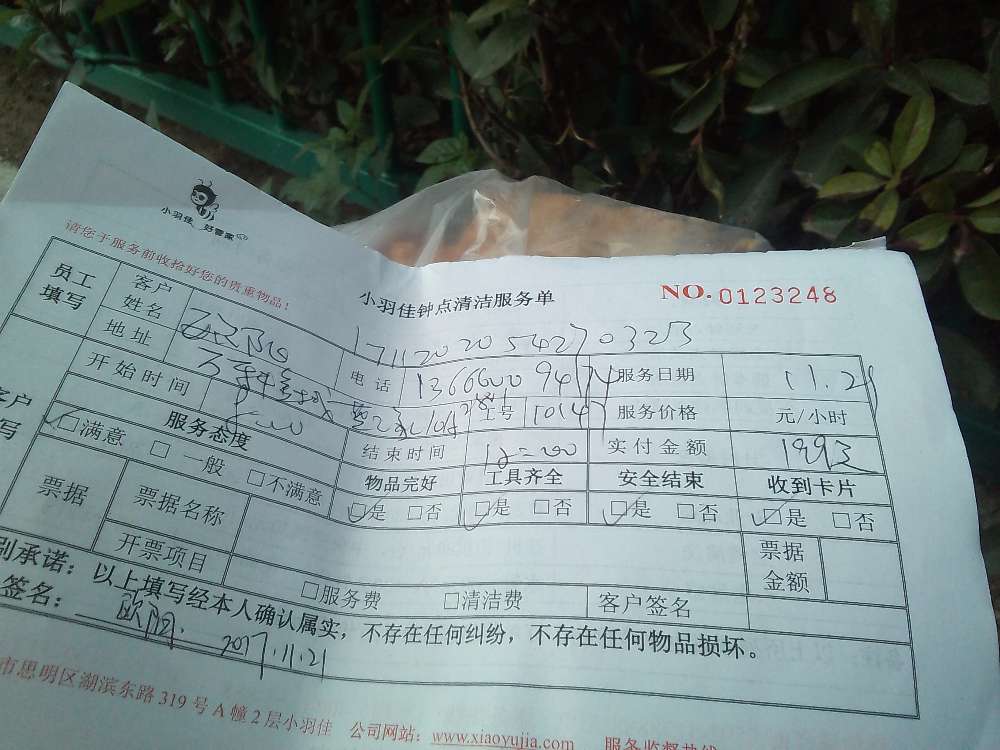 小羽佳 好管家
请您于服务前收拾好您的贵重物品！
小羽佳钟点清洁服务单
NO. 0123248
员工填写
客户姓名
地址
电话
服务日期 11.21
开始时间
工号 10147
服务价格 元/小时
服务态度
结束时间
实付金额
□满意 □一般 □不满意
物品完好 工具齐全 安全结束 收到卡片
□是 □否 □是 □否 □是 □否 □是 □否
票据
票据名称
开票项目
□服务费 □清洁费
票据金额
客户签名
承诺：以上填写经本人确认属实，不存在任何纠纷，不存在任何物品损坏。
签名： 欧阳. 2017.11.21
市思明区湖滨东路319号A幢2层小羽佳 公司网站：www.xiaoyujia.com 服务监督热线